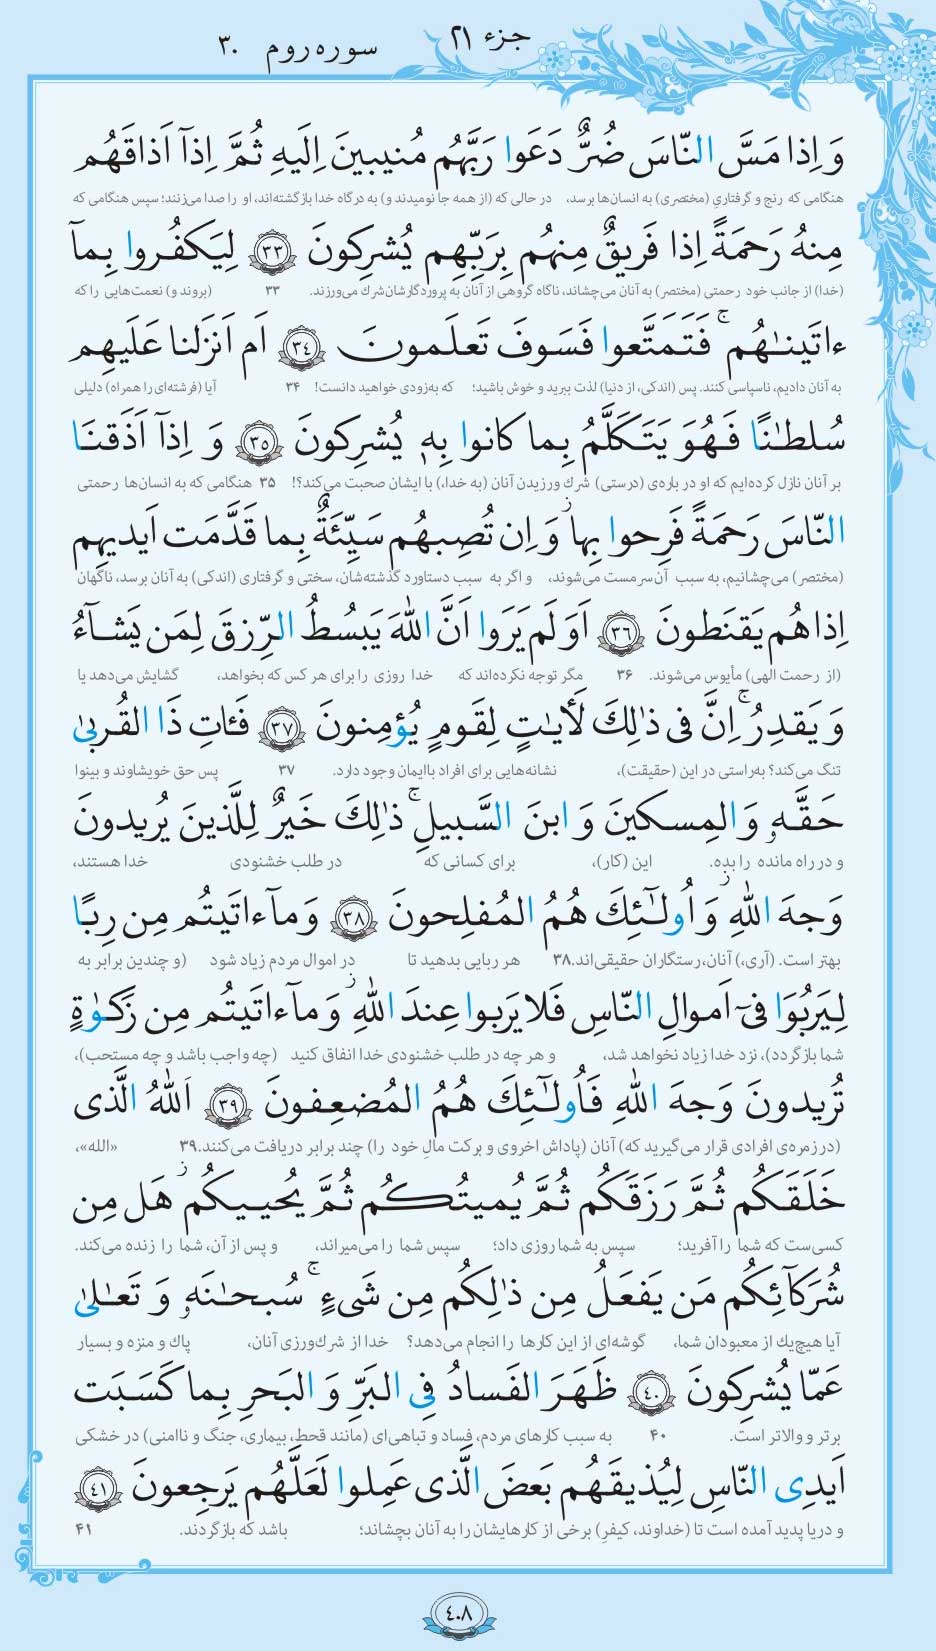 جزء ۲۱
سوره روم ۳۰
وَ اِذا مَسَّ النّاسَ ضُرٌّ دَعَوا رَبَّهُم مُنیبینَ اِلَیهِ ثُمَّ اِذآ اَذاقَهُم
هنگامی که رنج و گرفتاریِ (مختصری) به انسان‌ها برسد، در حالی که (از همه جا نومیدند و) به درگاه خدا بازگشته‌اند، او را صدا می‌زنند؛ سپس هنگامی که
مِنهُ رَحمَةً اِذا فَریقٌ مِنهُم بِرَبِّهِم یُشرِکونَ ﴿۳۳﴾ لِیَکفُروا بِمآ
(خدا) از جانب خود رحمتی (مختصر) به آنان می‌چشاند، ناگاه گروهی از آنان به پروردگارشان شرک می‌ورزند. ۳۳ (بروند و) نعمت‌هایی را که
ءاتَینٰهُم ۚ فَتَمَتَّعوا فَسَوفَ تَعلَمونَ ﴿۳۴﴾ اَم اَنزَلنا عَلَیهِم
به آنان دادیم، ناسپاسی کنند. پس (اندکی، از دنیا) لذت ببرید و خوش باشید؛ که به‌زودی خواهید دانست! ۳۴ آیا (فرشته‌ای را همراه) دلیلی
سُلطٰنًا فَهُوَ یَتَکَلَّمُ بِما کانوا بِهٖ یُشرِکونَ ﴿۳۵﴾ وَ اِذآ اَذَقنَا
بر آنان نازل کرده‌ایم که او در باره‌ی (درستی) شرک ورزیدن آنان (به خدا،) با ایشان صحبت می‌کند؟! ۳۵ هنگامی که به انسان‌ها رحمتی
النّاسَ رَحمَةً فَرِحوا بِها ۖ وَ اِن تُصِبهُم سَیِّئَةٌ بِما قَدَّمَت اَیدیهِم
(مختصر) می‌چشانیم، به سبب آن سرمست می‌شوند، و اگر به سبب دستاورد گذشته‌شان، سختی و گرفتاری (اندکی) به آنان برسد، ناگهان
اِذا هُم یَقنَطونَ ﴿۳۶﴾ اَوَلَم یَرَوا اَنَّ اللّٰهَ یَبسُطُ الرِّزقَ لِمَن یَشآءُ
(از رحمت الهی) مأیوس می‌شوند. ۳۶ مگر توجه نکرده‌اند که خدا روزی را برای هر کس که بخواهد، گشایش می‌دهد یا
وَ یَقدِرُ ۚ اِنَّ فی ذٰلِکَ لَأٰیٰتٍ لِقَومٍ یُؤمِنونَ ﴿۳۷﴾ فَـٔاتِ ذَا القُربیٰ
تنگ می‌کند؟ به‌راستی در این (حقیقت)، نشانه‌هایی برای افراد باایمان وجود دارد. ۳۷ پس حق خویشاوند و بینوا
حَقَّهٗ وَ المِسکینَ وَ ابنَ السَّبیلِ ۚ ذٰلِکَ خَیرٌ لِلَّذینَ یُریدونَ
و در راه مانده را بده. این (کار)، برای کسانی که در طلب خشنودی خدا هستند،
وَجهَ اللّٰهِ ۖ وَ اُولٰٓئِکَ هُمُ المُفلِحونَ ﴿۳۸﴾ وَ مآ ءاتَیتُم مِن رِبًا
بهتر است. (آری،) آنان، رستگاران حقیقی‌اند. ۳۸ هر ربایی بدهید تا در اموال مردم زیاد شود (و چندین برابر به
لِیَربُوَا فی اَموالِ النّاسِ فَلا یَربوا عِندَ اللّٰهِ ۖ وَ مآ ءاتَیتُم مِن زَکوٰةٍ
شما بازگردد)، نزد خدا زیاد نخواهد شد، و هر چه در طلب خشنودی خدا انفاق کنید (چه واجب باشد و چه مستحب)،
تُریدونَ وَجهَ اللّٰهِ فَاُولٰٓئِکَ هُمُ المُضعِفونَ ﴿۳۹﴾ اَللّٰهُ الَّذی
(در زمره‌ی افرادی قرار می‌گیرید که) آنان (پاداش اخروی و برکت مالِ خود را) چند برابر دریافت می‌کنند. ۳۹ «الله»،
خَلَقَکُم ثُمَّ رَزَقَکُم ثُمَّ یُمیتُکُم ثُمَّ یُحییکُم ۖ هَل مِن
کسی‌ست که شما را آفرید؛ سپس به شما روزی داد؛ سپس شما را می‌میراند، و پس از آن، شما را زنده می‌کند.
شُرَکآئِکُم مَن یَفعَلُ مِن ذٰلِکُم مِن شَیءٍ ۚ سُبحٰنَهٗ وَ تَعالیٰ
آیا هیچ‌یک از معبودان شما، گوشه‌ای از این کارها را انجام می‌دهد؟ خدا از شرک‌ورزی آنان، پاک و منزه و بسیار
عَمّا یُشرِکونَ ﴿۴۰﴾ ظَهَرَ الفَسادُ فِی البَرِّ وَ البَحرِ بِما کَسَبَت
برتر و والاتر است. ۴۰ به سبب کارهای مردم، فساد و تباهی‌ای (مانند قحط، بیماری، جنگ و ناامنی) در خشکی
اَیدِی النّاسِ لِیُذیقَهُم بَعضَ الَّذی عَمِلوا لَعَلَّهُم یَرجِعونَ ﴿۴۱﴾
و دریا پدید آمده است تا (خداوند، کیفرِ) برخی از کارهایشان را به آنان بچشاند؛ باشد که بازگردند. ۴۱
۴۰۸